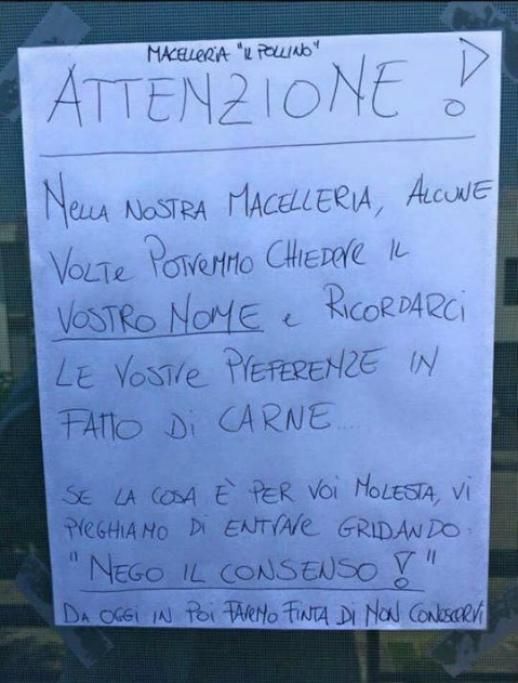 MACELLERIA "IL POLLINO"
ATTENZIONE !
NELLA NOSTRA MACELLERIA, ALCUNE
VOLTE POTREMMO CHIEDERE IL
VOSTRO NOME E RICORDARCI
LE VOSTRE PREFERENZE IN
FATTO DI CARNE....
SE LA COSA È PER VOI MOLESTA, VI
PREGHIAMO DI ENTRARE GRIDANDO:
"NEGO IL CONSENSO!"
DA OGGI IN POI FAREMO FINTA DI NON CONOSCERVI